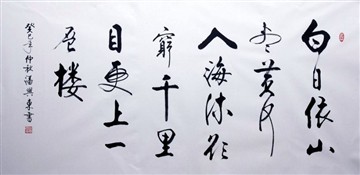 白日依山
尽黄河
入海流欲
穷千里
目更上一
层楼
癸巳年仲秋汤兴东书